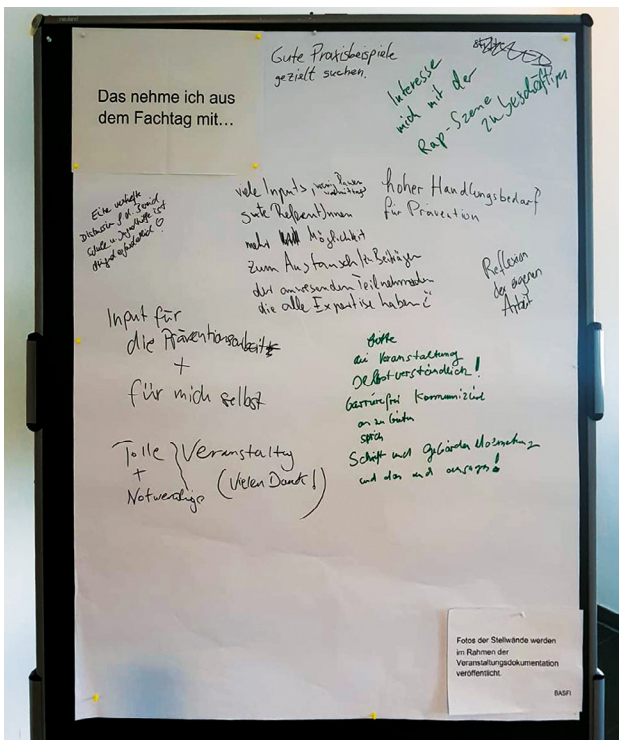 neuland
Das nehme ich aus
dem Fachtag mit...
Gute Praxisbeispiele
gezielt suchen.
Interesse
mich mit der
Rap-Szene
zu beschäftigen
Eine vertiefte
Diskussion
Schule u. Jugendhilfe ist
dringend erforderlich
viele Inputs
gute ReferentInnen
mehr Möglichkeit
zum Austausch/zu Beiträgen
der anwesenden Teilnehmenden
die alle Expertise haben
hoher Handlungsbedarf
für Prävention
Reflexion
der eigenen
Arbeit
Input für
die Präventionsarbeit
+
für mich selbst
Tolle
+
Notwendige
Veranstaltung
(Vielen Dank!)
Bitte
die Veranstaltung
Selbstverständlich!
Barrierefrei
Schrift und Gebärden
und das auch
Fotos der Stellwände werden
im Rahmen der
Veranstaltungsdokumentation
veröffentlicht.
BASFI